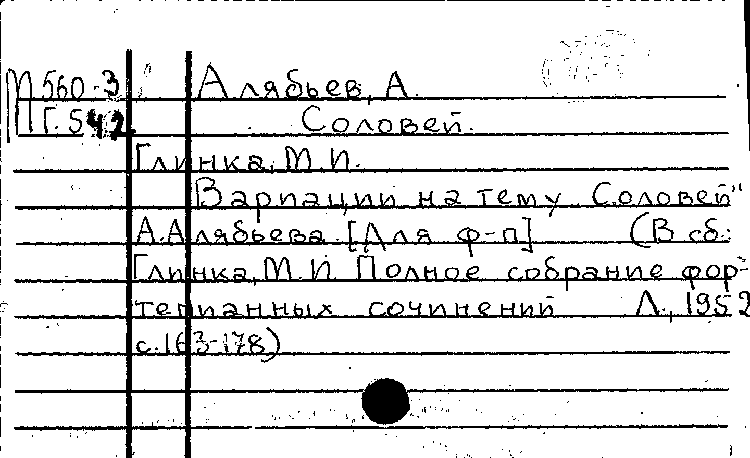 М 560-3 Алябьев, А.
Г. 542 Соловей.
Глинка, М.И.
Вариации на тему Соловей"
А. Алябьева [Для ф-п] (В сб.:
Глинка, М.И. Полное собрание фор-
тепианных сочинений Л., 1952
с. 163-178)